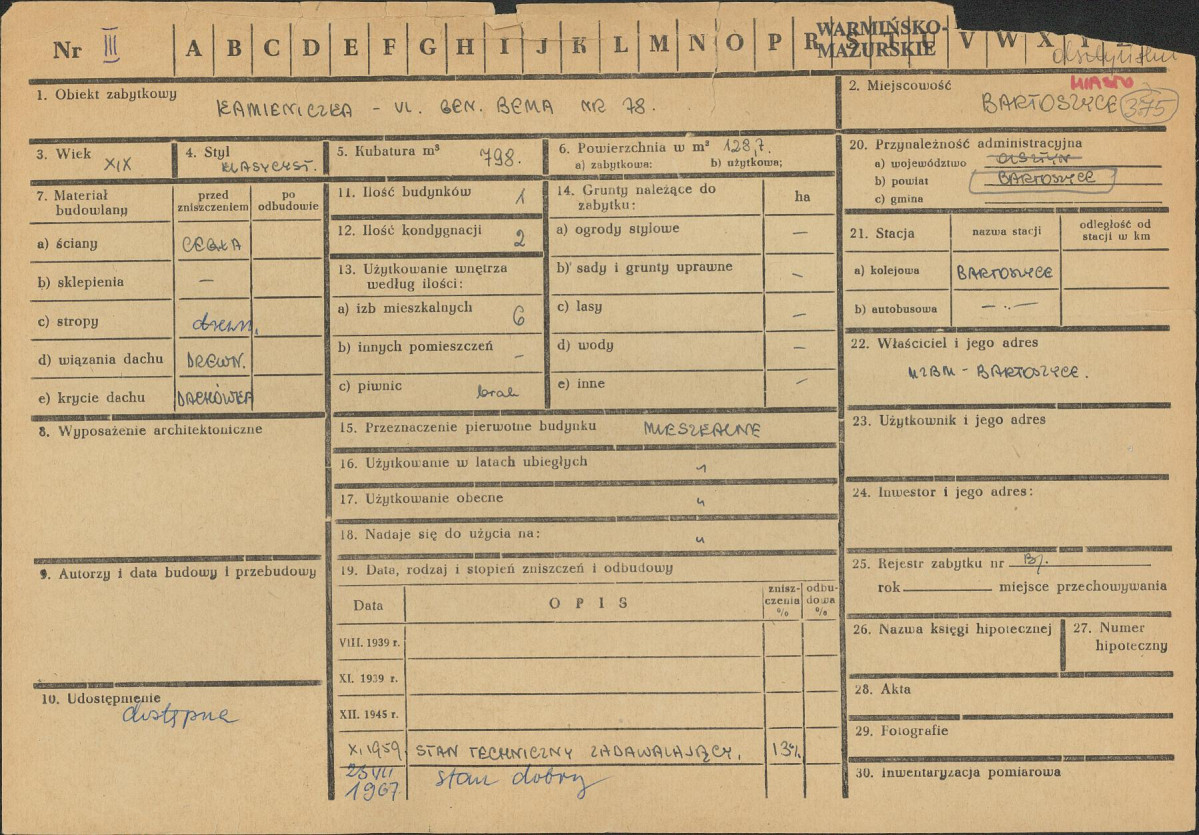 Nr III A B C D E F G H I J K L M N O P R S T U V W X Y Z
WARMIŃSKO-
MAZURSKIE
olsztyński
1. Obiekt zabytkowy
KAMIENICZKA – UL. GEN. BEMA NR 78.
2. Miejscowość
MIASTO
BARTOSZYCE 375
3. Wiek
XIX
4. Styl
KLASYCYST.
5. Kubatura m³ 798.
6. Powierzchnia w m² 128,7.
a) zabytkowa: b) użytkowa;
7. Materiał budowlany
przed zniszczeniem
po odbudowie
a) ściany CEGŁA
b) sklepienia –
c) stropy drewn.
d) wiązania dachu DREWN.
e) krycie dachu DACHÓWKA
8. Wyposażenie architektoniczne
9. Autorzy i data budowy i przebudowy
10. Udostępnienie
dostępne
11. Ilość budynków 1
12. Ilość kondygnacji 2
13. Użytkowanie wnętrza
według ilości:
a) izb mieszkalnych 6
b) innych pomieszczeń –
c) piwnic brak
14. Grunty należące do
zabytku:
ha
a) ogrody stylowe –
b) sady i grunty uprawne –
c) lasy –
d) wody –
e) inne –
15. Przeznaczenie pierwotne budynku MIESZKALNE
16. Użytkowanie w latach ubiegłych "
17. Użytkowanie obecne "
18. Nadaje się do użycia na: "
19. Data, rodzaj i stopień zniszczeń i odbudowy
Data
OPIS
znisz-
czenia
%
odbu-
dowa
%
VIII. 1939 r.
XI. 1939 r.
XII. 1945 r.
XI 1959. STAN TECHNICZNY ZADAWALAJĄCY. 13%
25 VII
1967 stan dobry
20. Przynależność administracyjna
a) województwo OLSZTYN
b) powiat BARTOSZYCE
c) gmina
21. Stacja
nazwa stacji
odległość od
stacji w km
a) kolejowa BARTOSZYCE
b) autobusowa – " –
22. Właściciel i jego adres
MZBM – BARTOSZYCE.
23. Użytkownik i jego adres
24. Inwestor i jego adres:
25. Rejestr zabytku nr
rok miejsce przechowywania
26. Nazwa księgi hipotecznej
27. Numer
hipoteczny
28. Akta
29. Fotografie
30. Inwentaryzacja pomiarowa